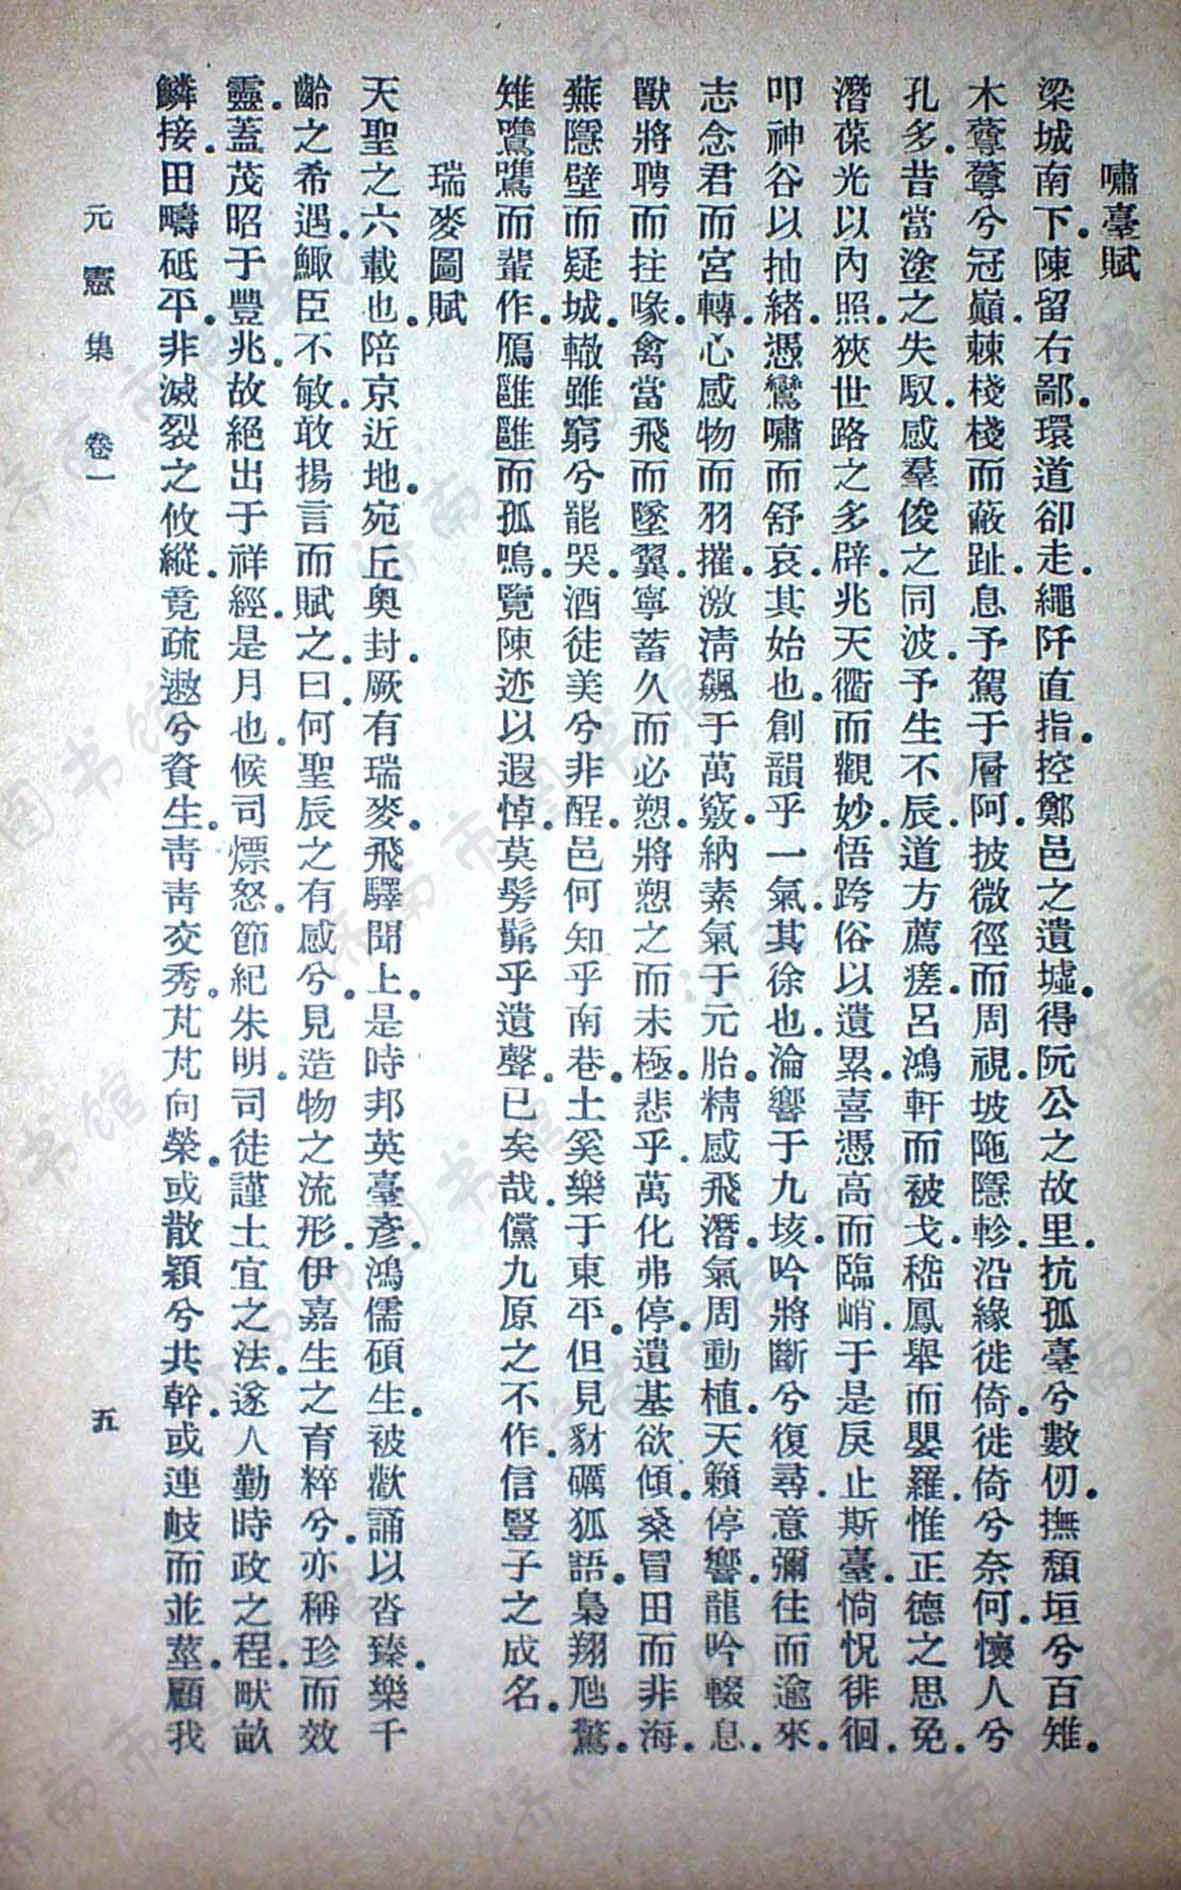 嘯臺賦
梁城南下。陳留右鄙。環道卻走。繩阡直指。控鄭邑之遺墟。得阮公之故里。抗孤臺兮數仞。撫頹垣兮百雉。
木薴薴兮冠巔。棘棧棧而蔽趾。息予駕于層阿。披微徑而周視。坡陁隱軫。沿緣徙倚。徙倚兮奈何。懷人兮
孔多。昔當塗之失馭。感羣俊之同波。予生不辰。道方薦瘥。呂鴻軒而被戈。嵇鳳舉而嬰羅。惟正德之思免。
潛葆光以內照。狹世路之多辟。兆天衢而觀妙。悟跨俗以遺累。喜憑高而臨峭。于是戾止斯臺。惝怳徘徊。
叩神谷以抽緒。憑鸞嘯而舒哀。其始也。創韻乎一氣。其徐也。淪響于九垓。吟將斷兮復尋。意彌往而逾來。
志念君而宮轉。心感物而羽摧。激清飆于萬竅。納素氣于元胎。精感飛潛。氣周動植。天籟停響。龍吟輟息。
獸將騁而拄喙。禽當飛而墜翼。寧蓄久而必愬。將愬之而未極。悲乎。萬化弗停。遺基欲傾。桑冒田而非海。
蕪隱壁而疑城。轍雖窮兮罷哭。酒徒美兮非醒。邑何知乎南巷。土奚樂于東平。但見豺礪狐語。梟翔虺驚。
雉鷕鷕而輩作。鴈雝雝而孤鳴。覽陳迹以遐悼。莫髣髴乎遺聲。已矣哉。儻九原之不作。信豎子之成名。
瑞麥圖賦
天聖之六載也。陪京近地。宛丘奧封。厥有瑞麥。飛驛聞上。是時邦英臺彥。鴻儒碩生。被歡誦以沓臻。樂千
齡之希遇。鯫臣不敏。敢揚言而賦之。曰。何聖辰之有感兮。見造物之流形。伊嘉生之育粹兮。亦稱珍而效
靈。蓋茂昭于豐兆。故絕出于祥經。是月也。候司熛怒。節紀朱明。司徒謹土宜之法。遂人勤時政之程。畎畝
鱗接。田疇砥平。非滅裂之攸縱。竟疏遬兮資生。青青交秀。芃芃向榮。或散穎兮共幹。或連岐而並莖。顧我
元憲集 卷一 五